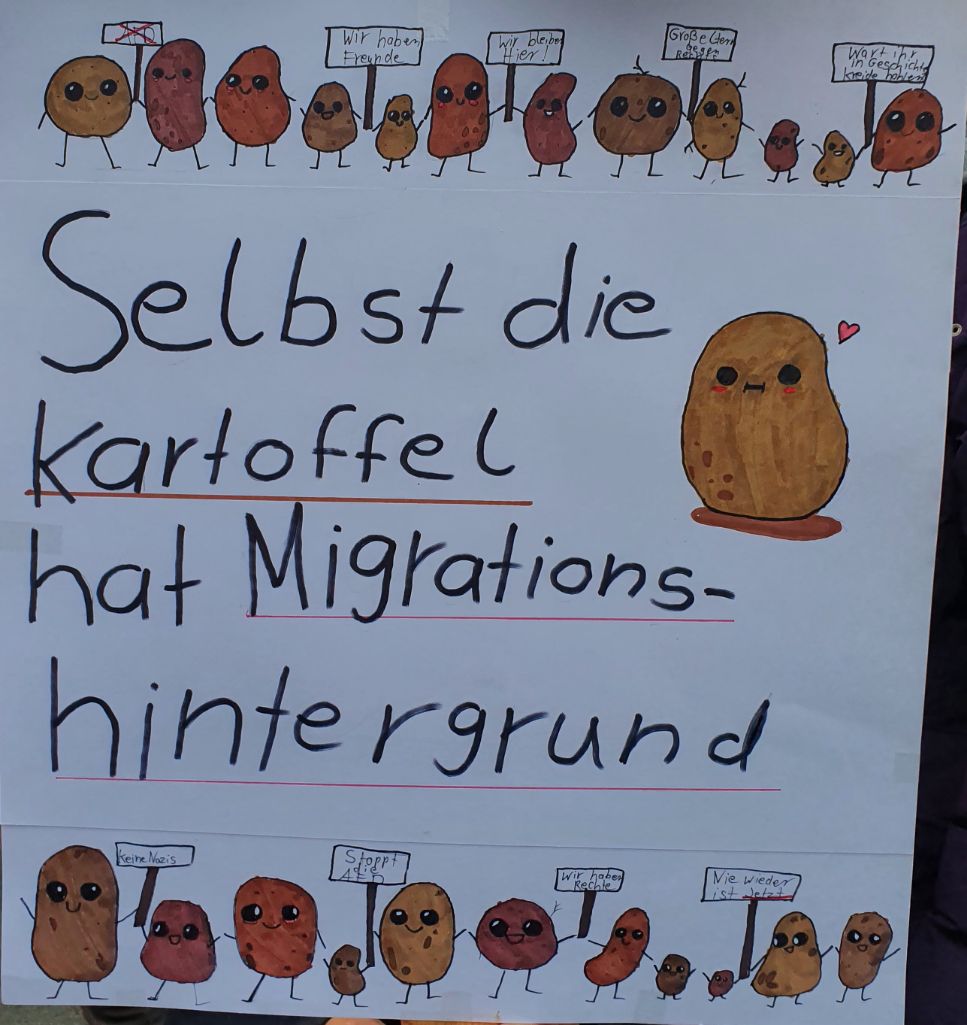 Wir haben
Freunde
Wir bleiben
Hier!
Großeltern
gegen
Rechts
Wart ihr
in Geschichte
kreide hohlen?
Selbst die
Kartoffel
hat Migrations-
hintergrund
keine Nazis
Stoppt
die
AFD
Wir haben
Rechte
Nie wieder
ist Jetzt